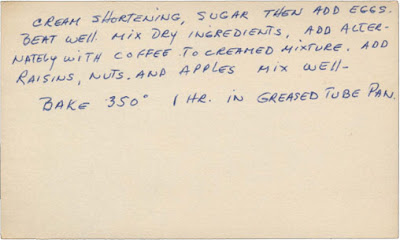 CREAM SHORTENING, SUGAR THEN ADD EGGS.
BEAT WELL. MIX DRY INGREDIENTS, ADD ALTER-
NATELY WITH COFFEE TO CREAMED MIXTURE. ADD
RAISINS, NUTS. AND APPLES MIX WELL-
BAKE 350° 1 HR. IN GREASED TUBE PAN.